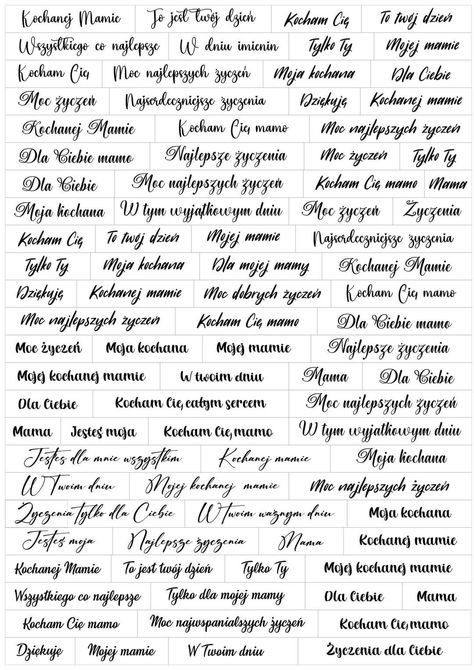 Kochanej Mamie To jest twój dzień Kocham Cię To twój dzień
Wszystkiego co najlepsze W dniu imienin Tylko Ty Mojej mamie
Kocham Cię Moc najlepszych życzeń Moja kochana Dla Ciebie
Moc życzeń Najserdeczniejsze życzenia Dziękuję Kochanej mamie
Kochanej Mamie Kocham Cię mamo Moc najlepszych życzeń
Dla Ciebie mamo Najlepsze życzenia Moc życzeń Tylko Ty
Dla Ciebie Moc najlepszych życzeń Kocham Cię mamo Mama
Moja kochana W tym wyjątkowym dniu Moc życzeń Życzenia
Kocham Cię To twój dzień Mojej mamie Najserdeczniejsze życzenia
Tylko Ty Moja kochana Dla mojej mamy Kochanej Mamie
Dziękuję Kochanej mamie Moc dobrych życzeń Kocham Cię mamo
Moc najlepszych życzeń Kocham Cię mamo Dla Ciebie mamo
Moc życzeń Moja kochana Mojej mamie Najlepsze życzenia
Mojej kochanej mamie W twoim dniu Mama Dla Ciebie
Dla Ciebie Kocham Cię całym sercem Moc najlepszych życzeń
Mama Jesteś moja Kocham Cię, mamo W tym wyjątkowym dniu
Jesteś dla mnie wszystkim Kochanej mamie Moja kochana
W Twoim dniu Mojej kochanej mamie Moc najlepszych życzeń
Życzenia tylko dla Ciebie W Twoim ważnym dniu Moja kochana
Jesteś moja Najlepsze życzenia Mama Kochanej mamie
Kochanej Mamie To jest twój dzień Tylko Ty Mojej kochanej mamie
Wszystkiego co najlepsze Tylko dla mojej mamy Dla Ciebie Mama
Kocham Cię mamo Moc najwspanialszych życzeń Kocham Cię, mamo
Dziękuję Mojej mamie W Twoim dniu Życzenia dla Ciebie